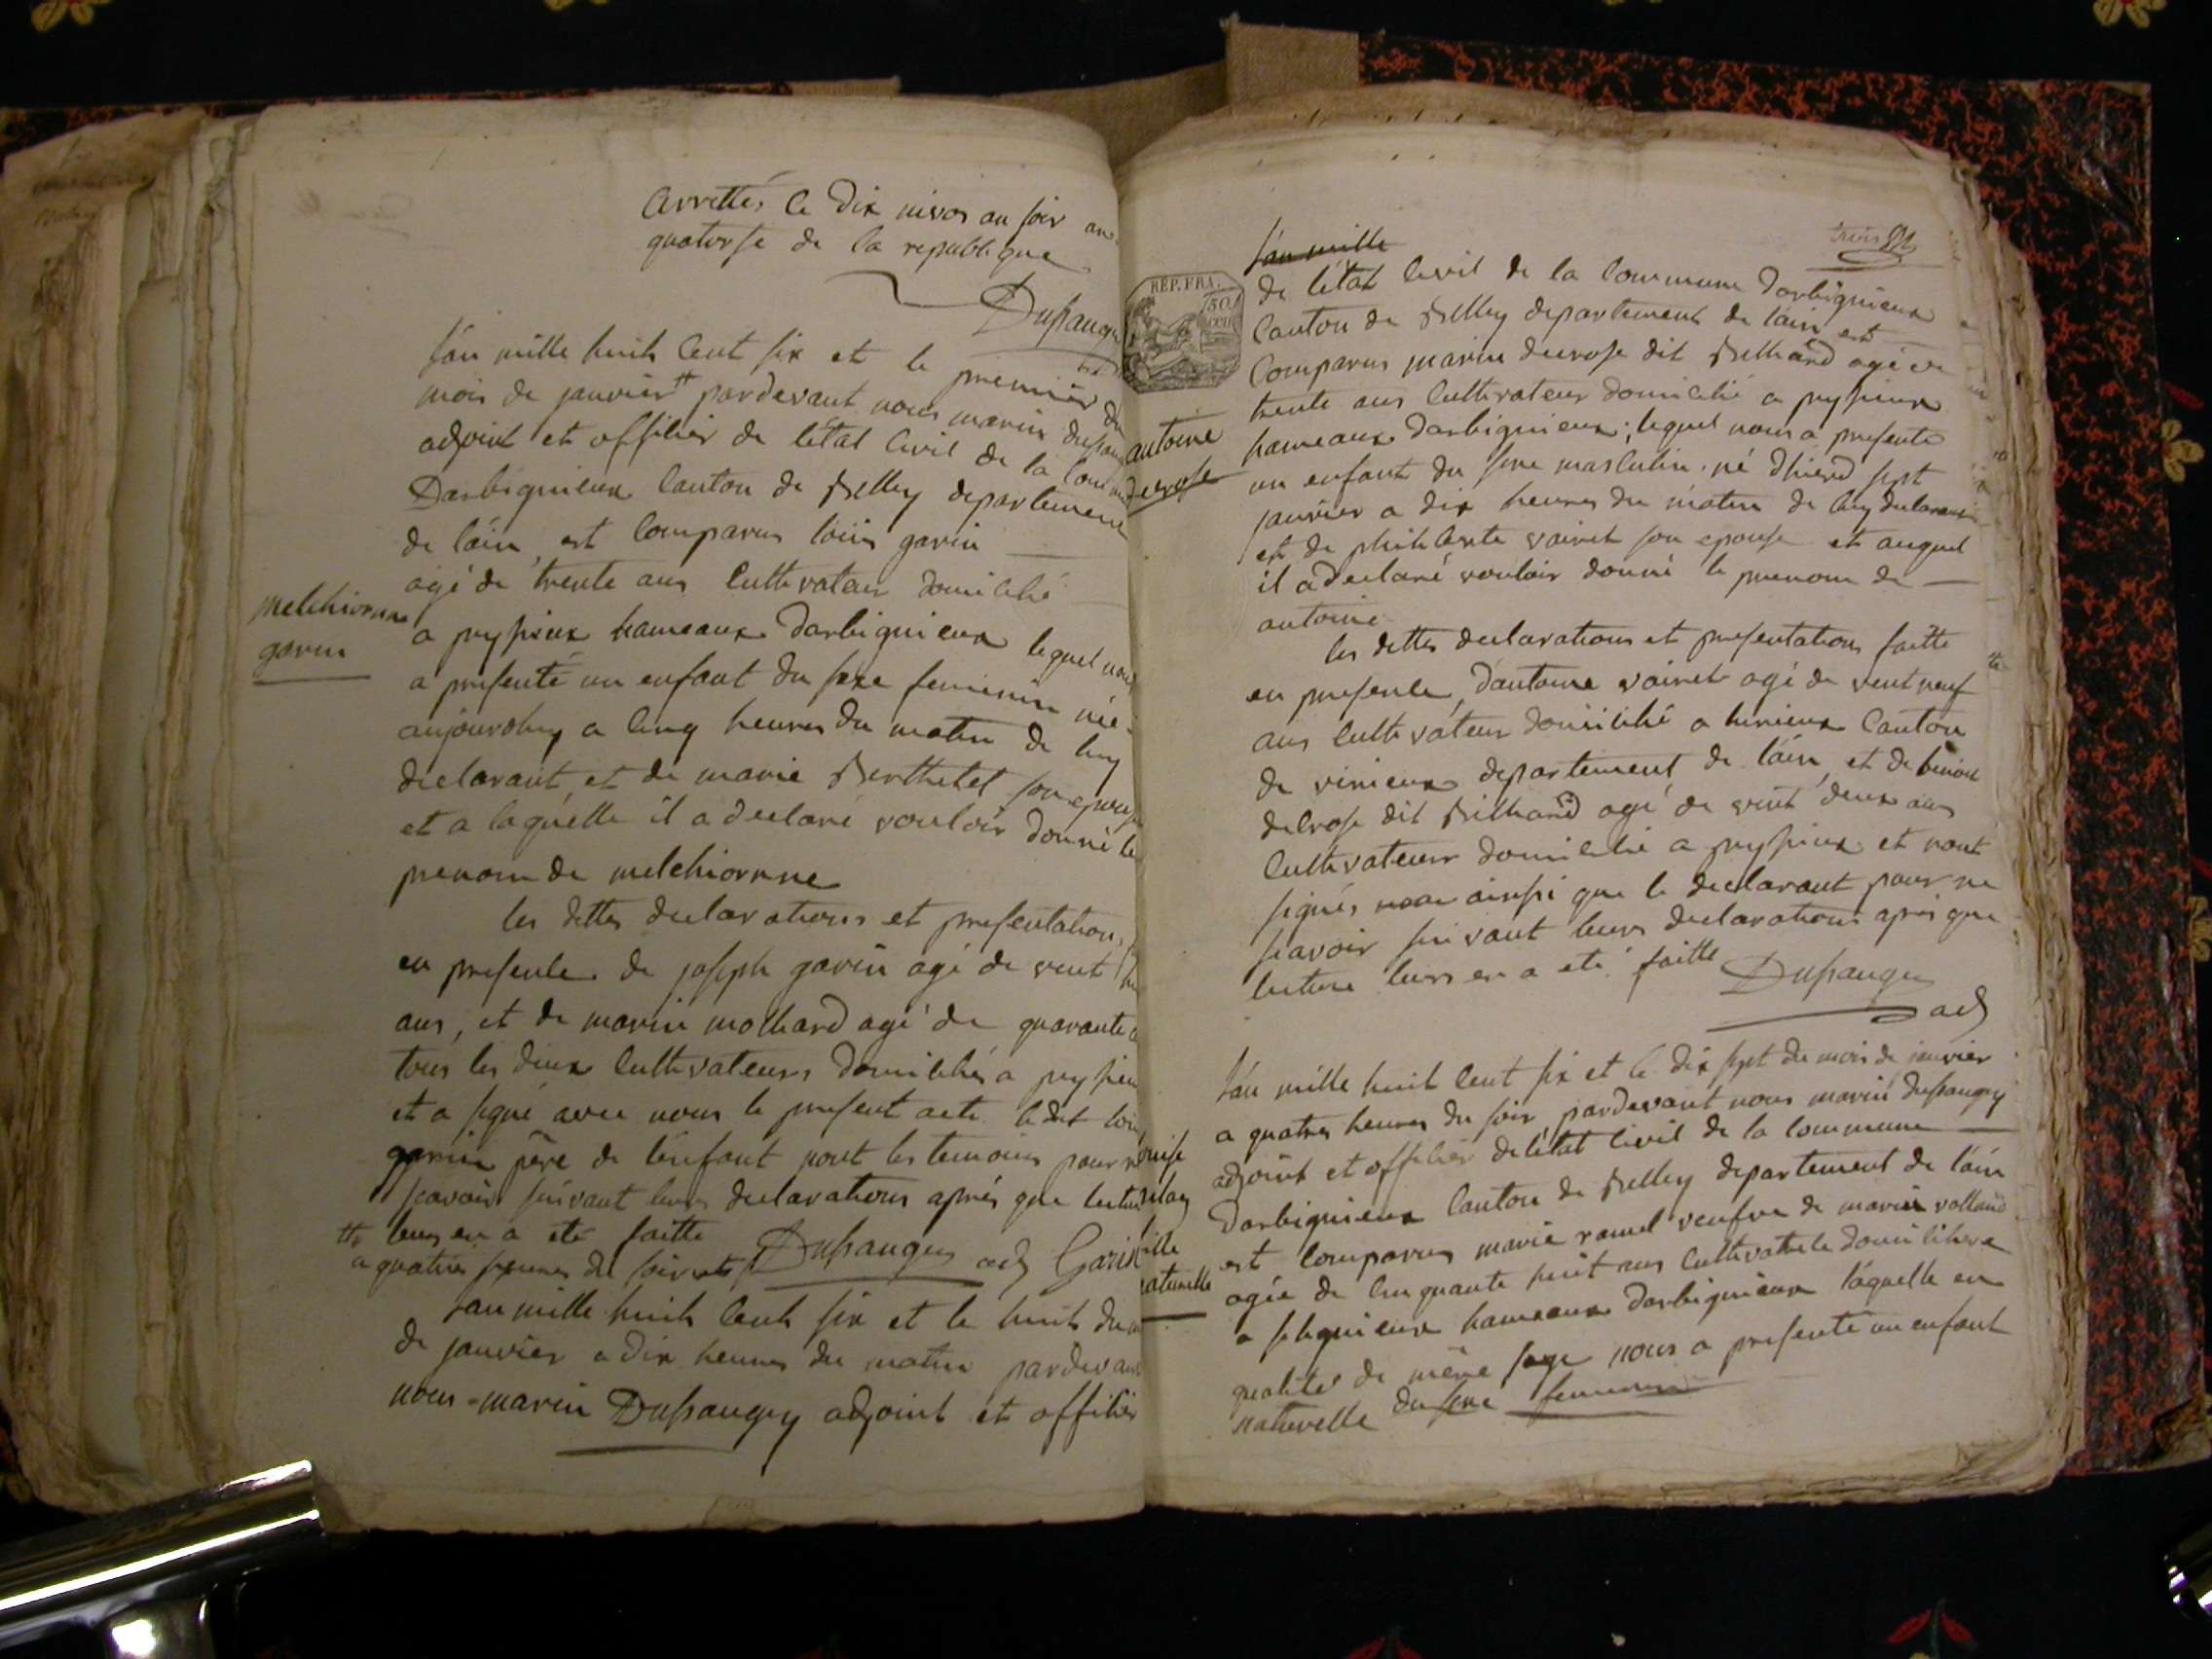 arrettés le dix nivos au soir an
quatorse de la republique
Dussaugey
l'an mille huit cent six et le premier du
mois de janvier # pardevant nous marin dussaug
adjoint et officier de létat civil de la commun
Darbignieux canton de Belley departement
de láin, est comparus loüis garin
agé de trente ans cultivateur domicilié
melchiornne
garin
a peyssieux hameaux darbignieux lequel nous
a presenté un enfant du sexe feminin née
aujourdhuy a cinq heures du matin de luy
declarant, et de marie Berthetet son epouse
et a laquelle il a declaré vouloir donné le
prenom de melchiornne
les dittes declarations et presentations
en presence de joseph garin agé de vent
ans, et de marin mollard agé de quarante
tous les deux cultivateurs domiciliés a peyssieu
et a signé avec nous le present acte ledit loui
garin père de lénfant nont les temoins pour ne
scavoir suivant leurs declarations aprés que lectur
leurs en a eté faitte
# a quatres heures du soir
Dussaugey adj Garin
l'an mille huit cent six et le huit du m
de janvier a dix heures du matin pardevant
nous marin Dussaugey adjoint et officier
trois
REP. FRA.
50
l'an mille
de létat civil de la commune darbignieux
canton de Belley departement de láin est
comparus marin decrose dit Billiard agé de
trente ans cultivateur domicilié a peyssieux
antoine
decrose
hameaux darbignieux; lequel nous a presenté
un enfant du sexe masculin né dhierd sept
janvier a dix heures du matin de luy declarant
et de philiberte vairet son epouse et auquel
il a declaré vouloir donné le prenom de
antoine
les dittes declarations et presentations faitte
en presence, dántoine vairet agé de vent neuf
ans cultivateur domicilié a canton
de virieux departement de láin, et de benoit
decrose dit Billiard agé de vent deux ans
cultivateur domicilié a peyssieux et nont
signés ainssi que le declarant pour ne
scavoir suivant leurs declarations aprés que
lecture leurs en a eté faitte
Dussaugey
adj
l'an mille huit cent six et le dix sept du mois de janvier
a quatres heures du soir pardevant nous marin dussaugey
adjoint et officier de létat civil de la commune
Darbignieux canton de Belley departement de láin
est comparus marie ramel veufve de marin volland
agée de cinquante huit ans cultivatrice domiciliere
fille
naturelle
a hameaux darbignieux láquelle en
qualités de mére sage nous a presenté un enfant
naturelle du sexe feminin